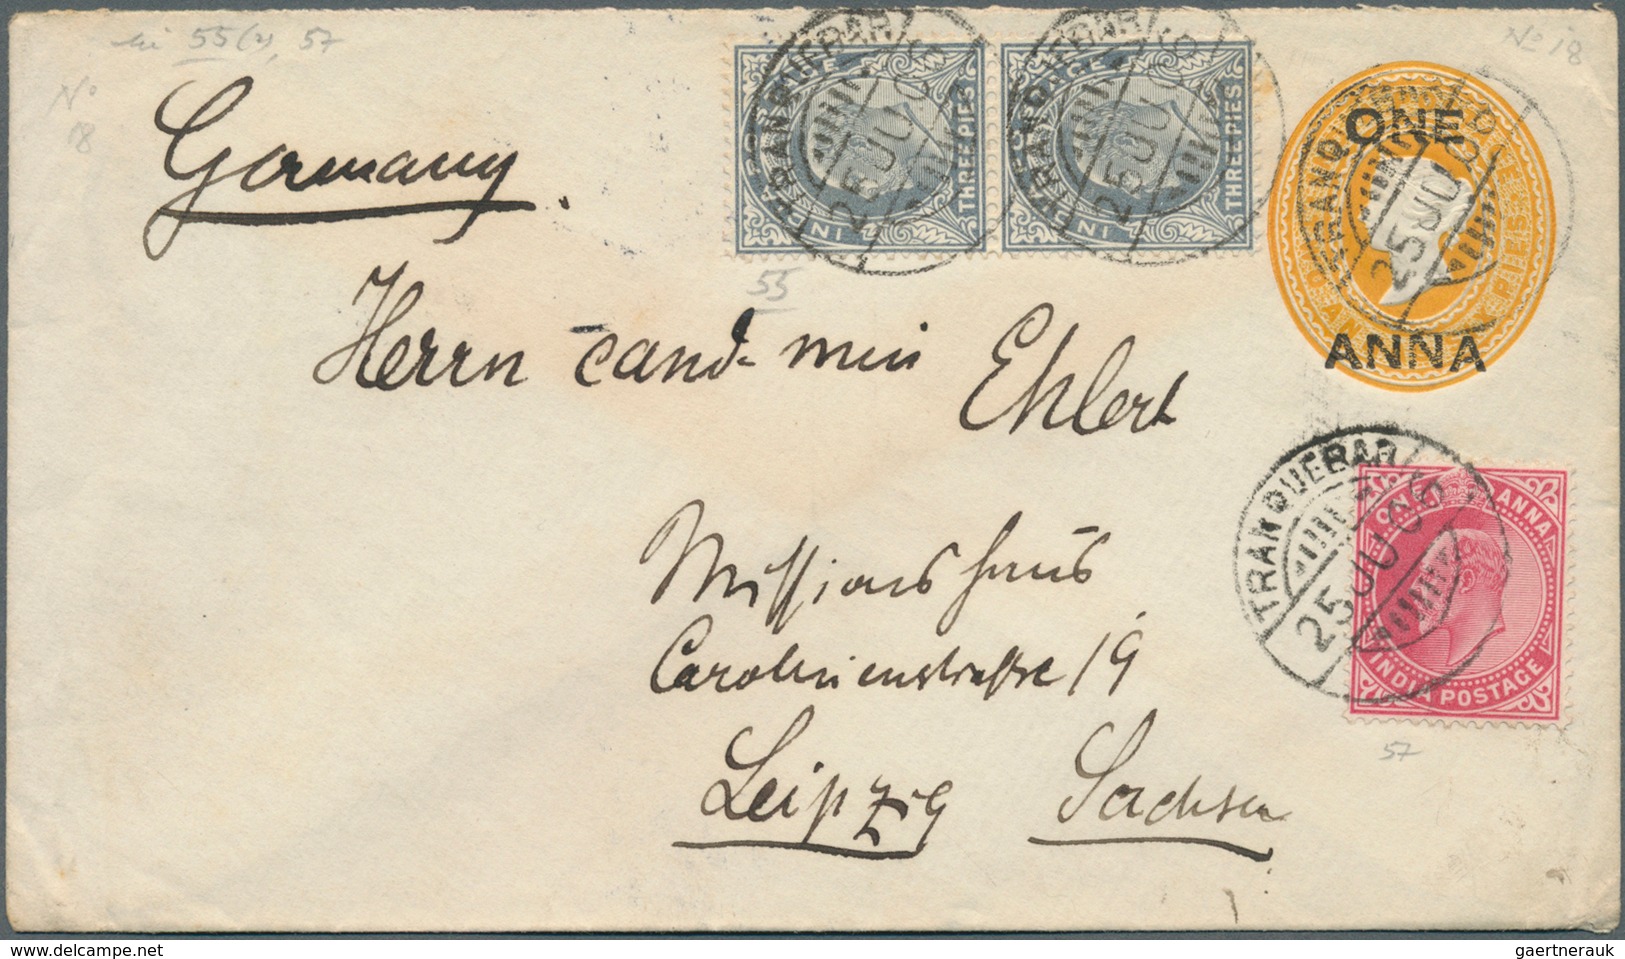 55(2), 57
No 18
No
18
Germany.
TRANQUEBAR
25 JU 06
THREE PIES
TRANQUEBAR
25 JU 06
THREE PIES
ONE
ANNA
TRANQUEBAR
25 JU 06
55
Herrn cand. min Ehlert
Missionshaus
Carolinenstrasse 19
Leipzig Sachsen
TRANQUEBAR
25 JU 06
ONE ANNA
INDIA POSTAGE
57
delcampe.net
gaertnerauk